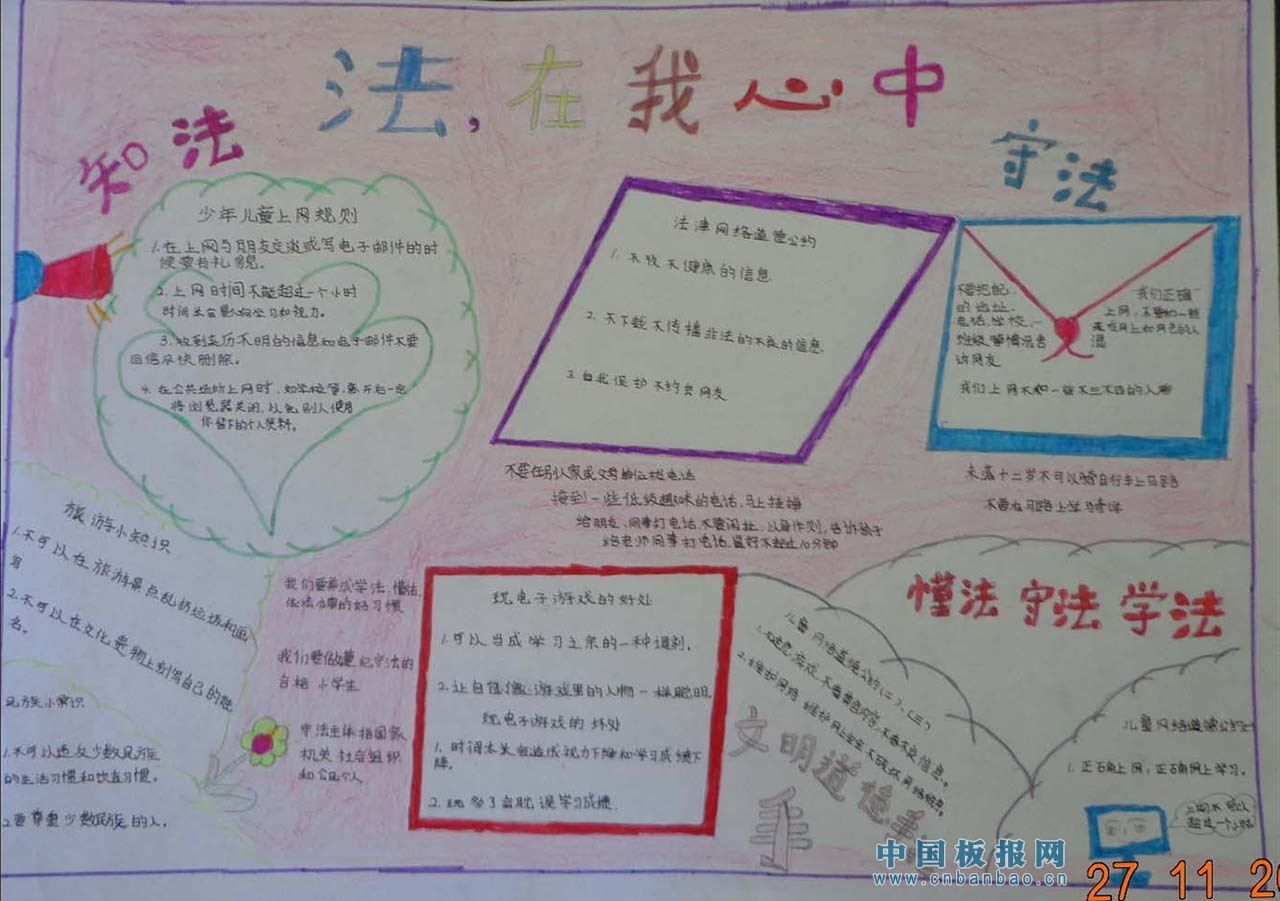 法,在我心中
知法
守法
少年儿童上网规则
1.在上网与朋友交谈或写电子邮件的时
候要有礼貌.
2.上网时间不能超过一个小时
时间长会影响学习和视力.
3.收到来历不明的信息和电子邮件不要
回信尽快删除。
4.在公共场所上网时,如学校等,离开后一定
将浏览器关闭,以免别人使用
你留下的个人资料。
法津网络道德公约
1.不收不健康的信息
2.不下载不传播非法的不良的信息.
3.自我保护不约会网友
不要把配
的地址.
电话.学校.
班级等情况告
诉网友
我们正确
上网,不要和一些
混
我们上网不和一些不三不四的人聊
接到一些低级趣味的电话,马上挂掉
给朋友、同事打电话不要闲扯,以身作则,告诉孩子
给老师同事打电话最好不超过10分钟
未满十二岁不可以骑自行车上马路
不要在马路上学习骑车
旅游小知识
1.不可以在旅游景点乱扔垃圾和画
写
2.不可以在文化遗物上刻写自己的姓
名。
民族小常识
1.不可以违反少数民族
的生活习惯和饮食习惯。
2.要尊重少数民族的人.
我们要养成学法.懂法,
依法办事的好习惯
我们要做遵纪守法的
合格小学生
守法主体指国家
机关社会组织
和公民个人
玩电子游戏的好处
1.可以当成学习之余的一种调剂.
2.让自己像游戏里的人物一样聪明.
玩电子游戏的坏处
1.时间太长会造成视力下降和学习成绩下
降.
2.玩多了会耽误学习成绩.
懂法守法学法
儿童网络道德公约(二)、(三)
2.维护网络 维护网上安全不破坏网络秩序.
文明道德
儿童网络道德公约
1.正确上网,正确网上学习。
上网不可以
超过一个小时
中国板报网
www.cnbanbao.cn
27 11 20